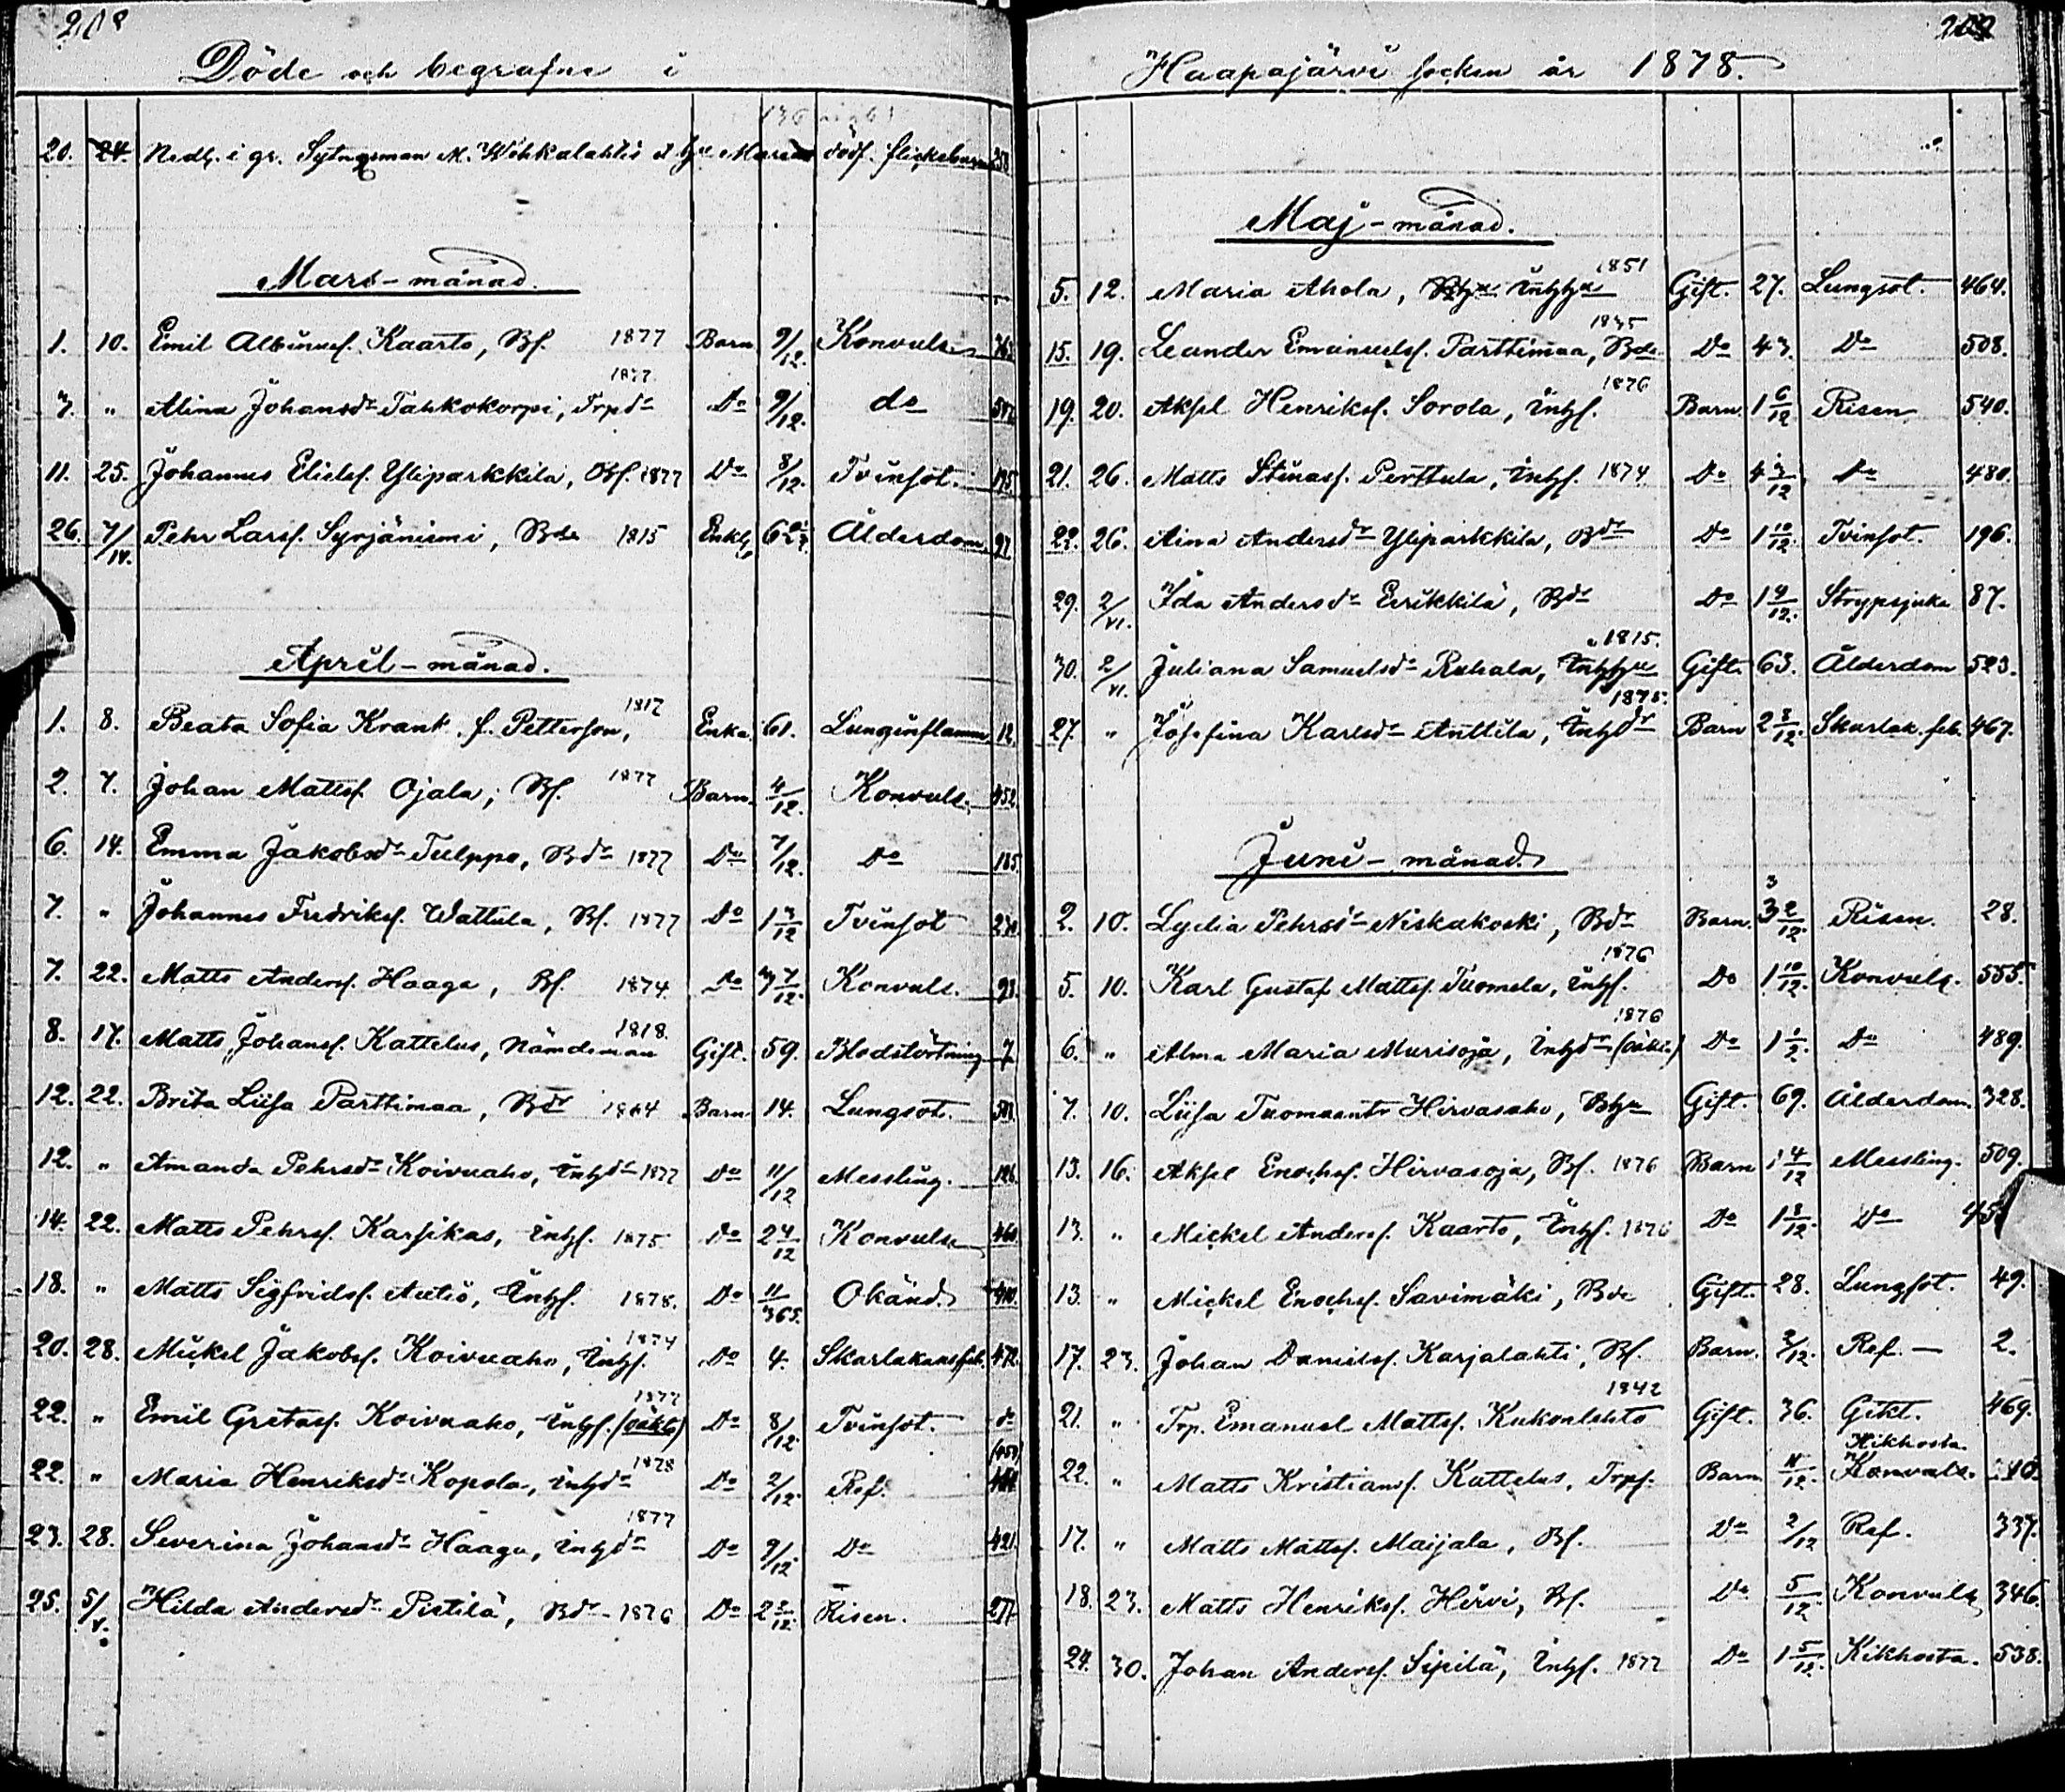 208
Döde och begrafne i
20. 24. Nedl. i gr. Sytngsman M. Wehkalahtis o. hu Marias dödf. flickebarn 258
Mars-månad.
1. 10. Emil Albinusf. Kaarto, Bf. 1877 Barn 9/12. Konvuls.
7. " Alina Johansdr Tahkokorpi, Trpdr 1877 Do 9/12. do
11. 25. Johannes Elielsf. Yliparkkila, Bf. 1877 Do 8/12. Tvinsot. 195
26. 7/IV. Pehr Larsf. Syrjäniemi, Bde 1815 Enkl. 62 Ålderdom 97
April-månad.
1. 8. Beata Sofia Krank f. Petterson, 1817 Enka 61. Lunginflamm. 12
2. 7. Johan Mattsf. Ojala, Bf. 1877 Barn. 4/12. Konvuls. 452
6. 14. Emma Jakobsdr Tulppo, Bdr 1877 Do 7/12. Do 185
7. " Johannes Fredriksf. Wattula, Bf. 1877 Do 1 3/12 Tvinsot
7. 22. Matts Andersf. Haaga, Bf. 1874 Do 3 7/12. Konvuls. 93
8. 17. Matts Johansf. Kattelus, Nämdeman 1818. Gift. 59. Blodstörtning 7
12. 22. Brita Liisa Parttimaa, Bdr 1864 Barn 14. Lungsot. 508
12. " Amanda Pehrsdr Koivuaho, Inhdr 1877 Do 11/12 Messling. 126
14. 22. Matts Pehrsf. Karsikas, Inhf. 1875 Do 2 4/12 Konvuls. 460
18. " Matts Sigfridsf. Autio, Inhf. 1878. Do 11/365. Okänd. 410
20. 28. Mickel Jakobsf. Koivuaho, Inhf. 1874 Do 4. Skarlakansfeb. 472
22. " Emil Gretasf. Koivuaho, Inhf. (oäkta) 1877 Do 8/12. Tvinsot. do
22. " Maria Henriksdr Kopola, Inhdr 1878 Do 2/12. Ref. (454)
23. 28. Severina Johansdr Haaga, Inhdr 1877 Do 9/12 Do 421
25. 5/V. Hilda Andersdr Pistilä, Bdr 1876 Do 2 2/12. Risen. 277
209
Haapajärvi socken år 1878.
Maj-månad.
5. 12. Maria Ahola, Inhhu 1851 Gift. 27. Lungsot. 464.
15. 19. Leander Emanuelsf. Parttimaa, Bde 1835 Do 43. Do 508.
19. 20. Aksel Henriksf. Sorola, Inhf. 1876 Barn. 1 6/12 Risen 540.
21. 26. Matts Stinasf. Perttula, Inhf. 1874 Do 4 3/12 Do 480.
22. 26. Aina Andersdr Yliparkkila, Bdr Do 1 10/12. Tvinsot. 196.
29. 2/VI. Ida Andersdr Eerikkilä, Bdr Do 1 9/12. Strypsjuka 87.
30. 2/VI. Juliana Samuelsdr Ruhala, Inhhu 1815. Gift. 63. Ålderdom 523.
27. " Josefina Karlsdr Anttila, Inhdr 1875. Barn 2 8/12. Skarlak. feb. 467.
Juni-månad.
2. 10. Lydia Pehrsdr Niskakoski, Bdr Barn. 3 2/12. Risen. 28.
5. 10. Karl Gustaf Mattsf. Tuomela, Inhf. 1876 Do 1 10/12. Konvuls. 555.
6. " Alma Maria Murisoja, Inhdr (oäkta) 1876 Do 1 1/2. Do 489.
7. 10. Liisa Tuomaantr Hirvasaho, Bhu Gift. 69. Ålderdom. 328.
13. 16. Aksel Enochsf. Hirvasoja, Bf. 1876 Barn 1 4/12 Messling. 509.
13. " Mickel Andersf. Kaarto, Inhf. 1876 Do 1 8/12. Do
13. " Mickel Enochsf. Savimäki, Bde Gift. 28. Lungsot. 49.
17. 23. Johan Danielsf. Karjalahti, Bf. Barn. 3/12. Ref. — 2.
21. " Trp. Emanuel Mattsf. Kukonlehto 1842 Gift. 36. Gikt. 469.
22. " Matts Kristiansf. Kattelus, Trpf. Barn 11/12. Kikhosta. Konvuls.
17. " Matts Mattsf. Maijala, Bf. Do 2/12 Ref. 337.
18. 23. Matts Henriksf. Hirvi, Bf. Do 5/12 Konvuls. 346.
24. 30. Johan Andersf. Sipilä, Inhf. 1877 Do 1 5/12. Kikhosta. 538.